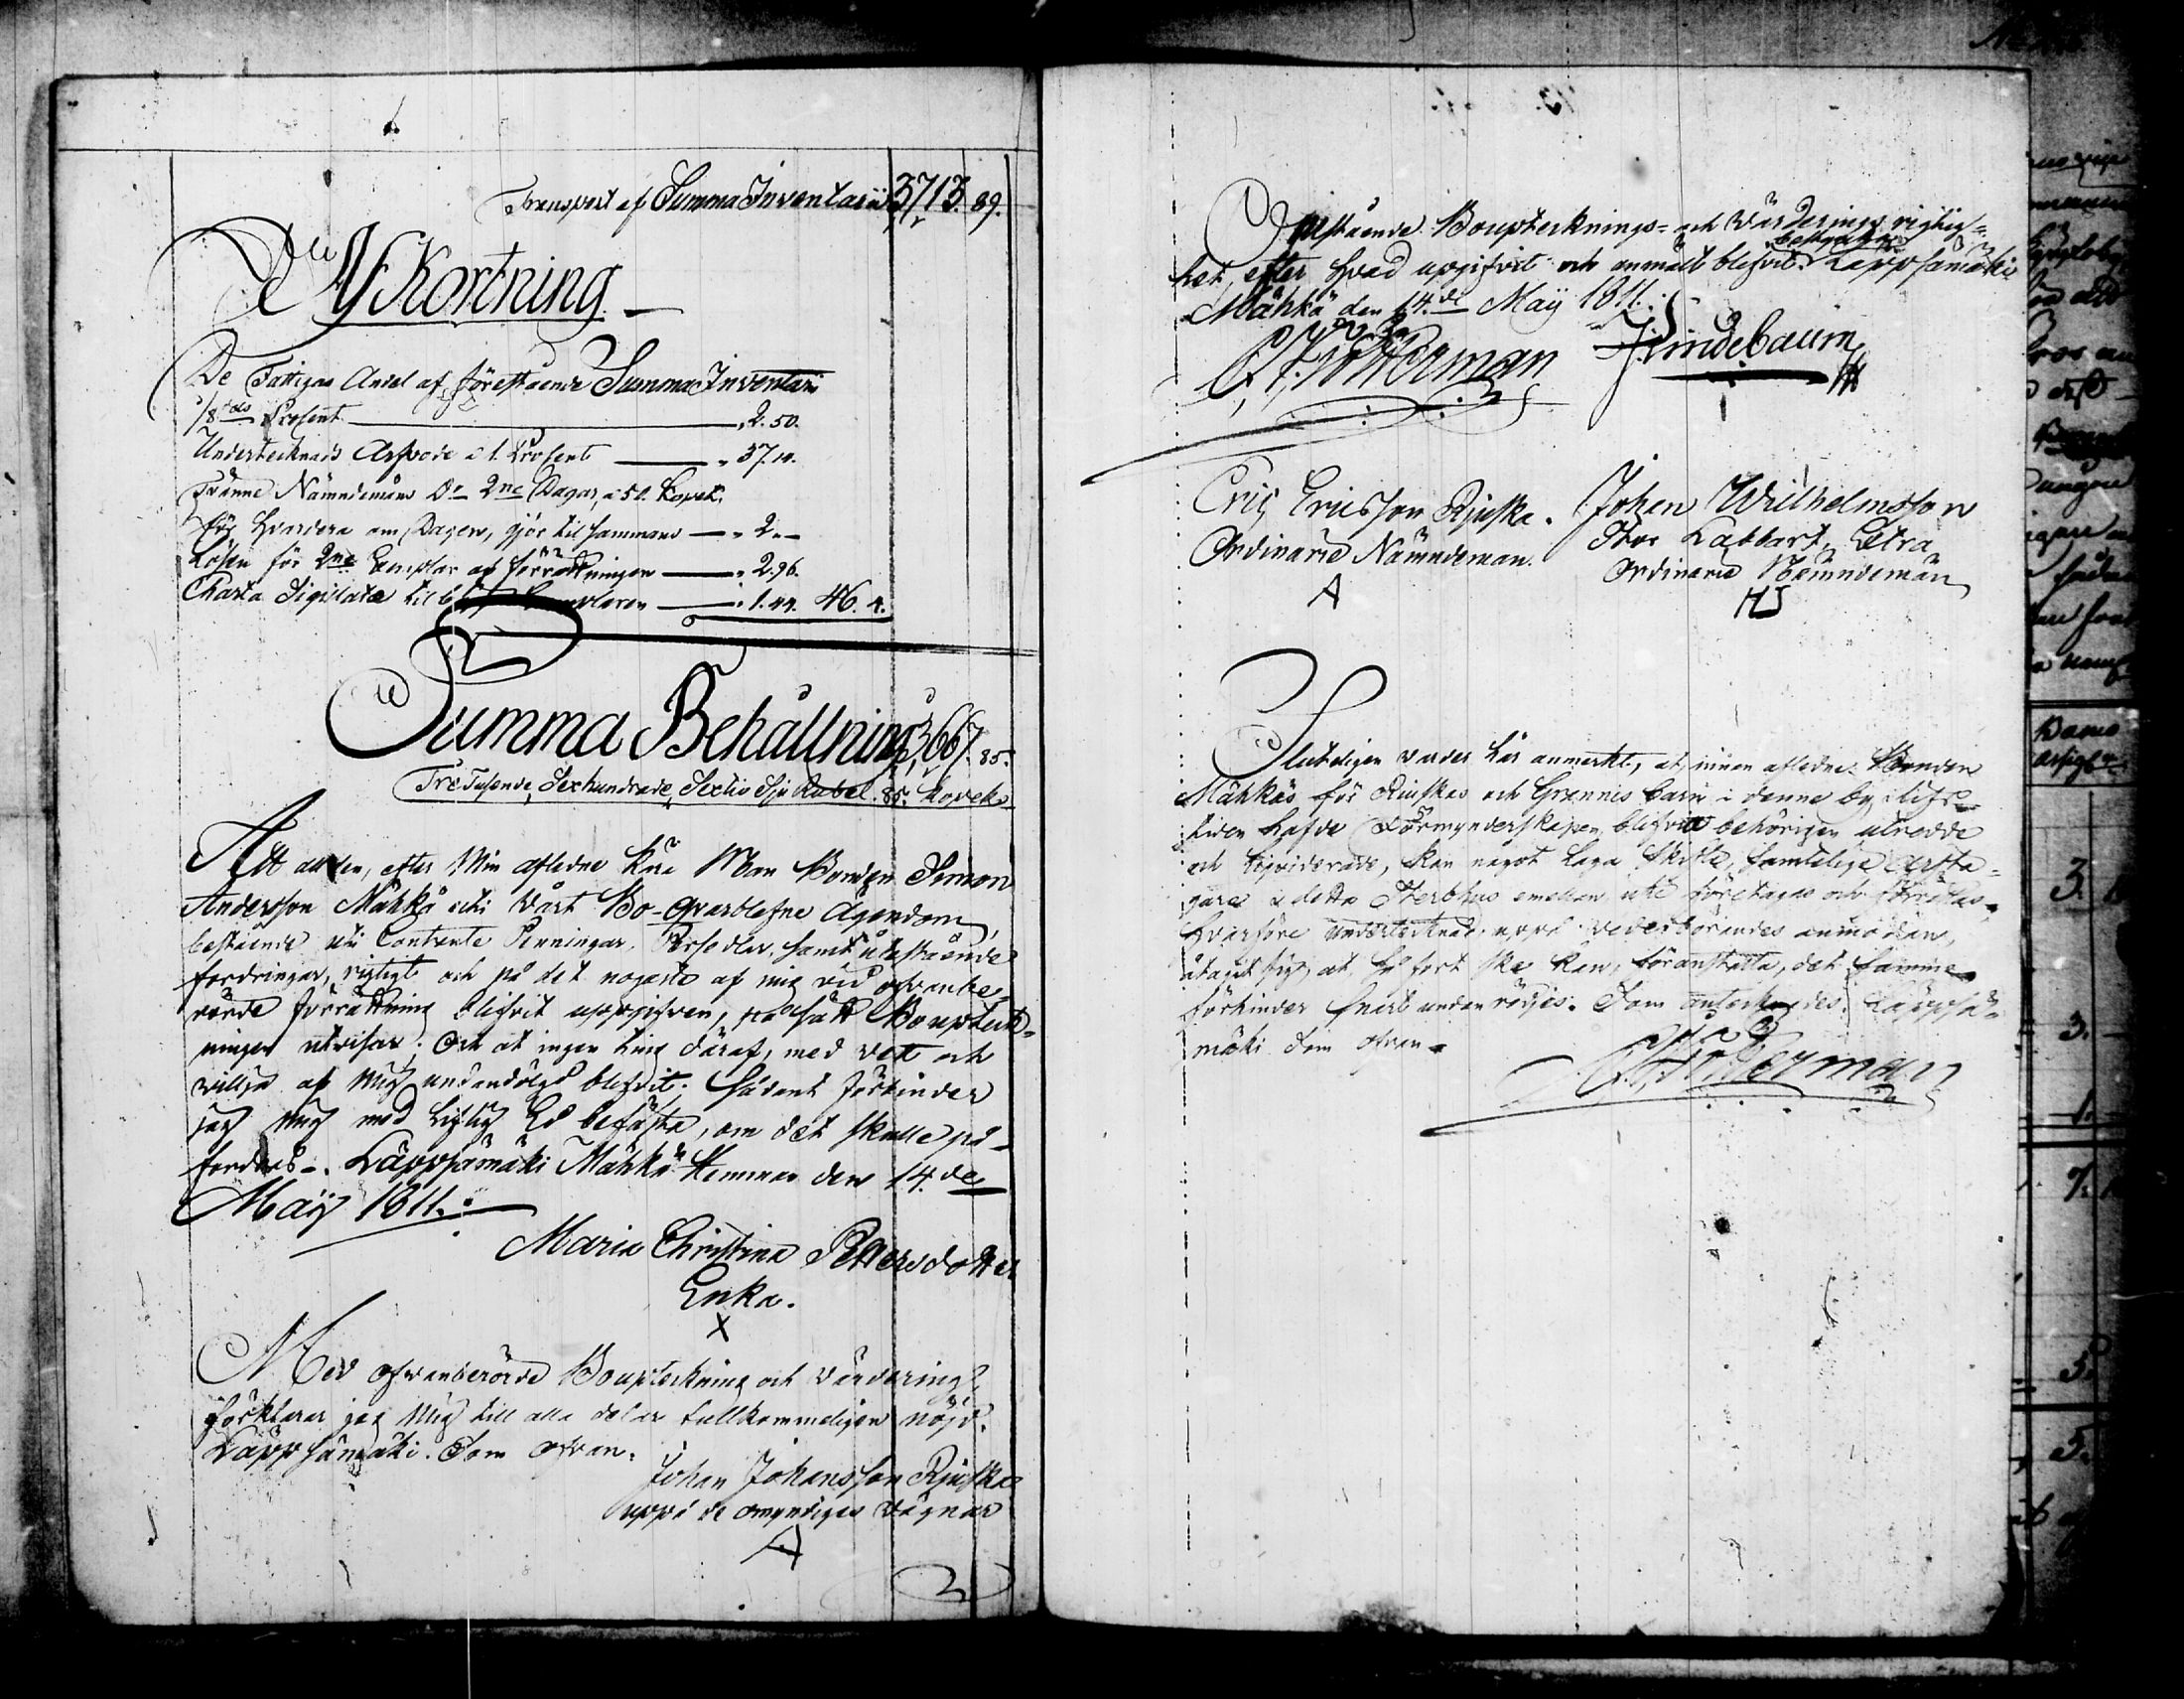 Transport af Summa Inventarii 3713. 89.
Afkortning
De Fattigas Andel af förestående Summa Inventarii
1/8dels Procent 2. 50.
Undertecknads Arfvode a 1. Procent 37. 14.
Tvänne Nämndemäns Do 2ne Dagar, a 50. Kopek.
för hvardera om Dagen, gjör tilsammans 2. -
Lösen för 2ne Exemplar af förrättningen 2. 96.
Charta Sigillata til Exemplaren 1. 44. 46. 4.
Summa Behållning 3,667. 85.
Tre Tusende Sexhundrade Sextio Sju Rubel. 85. Kopek
Att all den, efter Min afledne Kära Man Bonden Simon
Andersson Mähkä uti vårt Bo qvarblefne Ägendom,
bestående uti Contante Penningar, Persedlar, samt utestående
fordringar, rigtigt och på det nogaste af mig vid ofvanbe-
rörde förrättning blifvit uppgifven, på sätt Boupteck-
ningen utvisar. Och at ingen ting däraf, med vett och
willja af mig undandölgd blifvit. Sådant förbinder
jag mig med Liflig Ed befästa, om det skulle på-
fordras. Läppsämäki Mähkä Hemman den 14de
Maij 1811.
Maria Christina Pettersdotter
Enka.
X
Med ofvanberörde Bouptekning och värdering,
förklarar jag Mig till alla delar fullkommeligen nöjd.
Läppsämäki. Som ofvan.
Johan Johansson Rjuska
uppå de omyndigas vägnar
A
Ofvanstående Boupteknings- och Värderings rigtig-
het, efter hvad uppgifvit och anmält blifvit bestyrker Läppsämäki
Mähkä den 14de Maij 1811.
Lindebaum
Eric Ericsson Rjuska. Johan Wilhelmsson
Ordinarie Nämndeman. Stor Labbart, Etra
A Ordinarie Nämndeman
HJ
Sluteligen varder här anmerkt, at innan afledne Bonden
Mähkäs för Rjuskas och Grannis barn i denne by, i lifs-
tiden hafde Förmynderskapen blifvit behörigen utredde
och liqviderade, kan något Laga Skifte, samtelige Arfta-
gare i detta Sterbhus emellan icke företagas och förrättas
hvarföre undertecknad, uppå vederbörandes anmodan,
åtagit sig, at så fort ske kan, föranstalta, det samma
förhinder snart undanrödjes. Som antecknades. Läppsä-
mäki Som ofvan